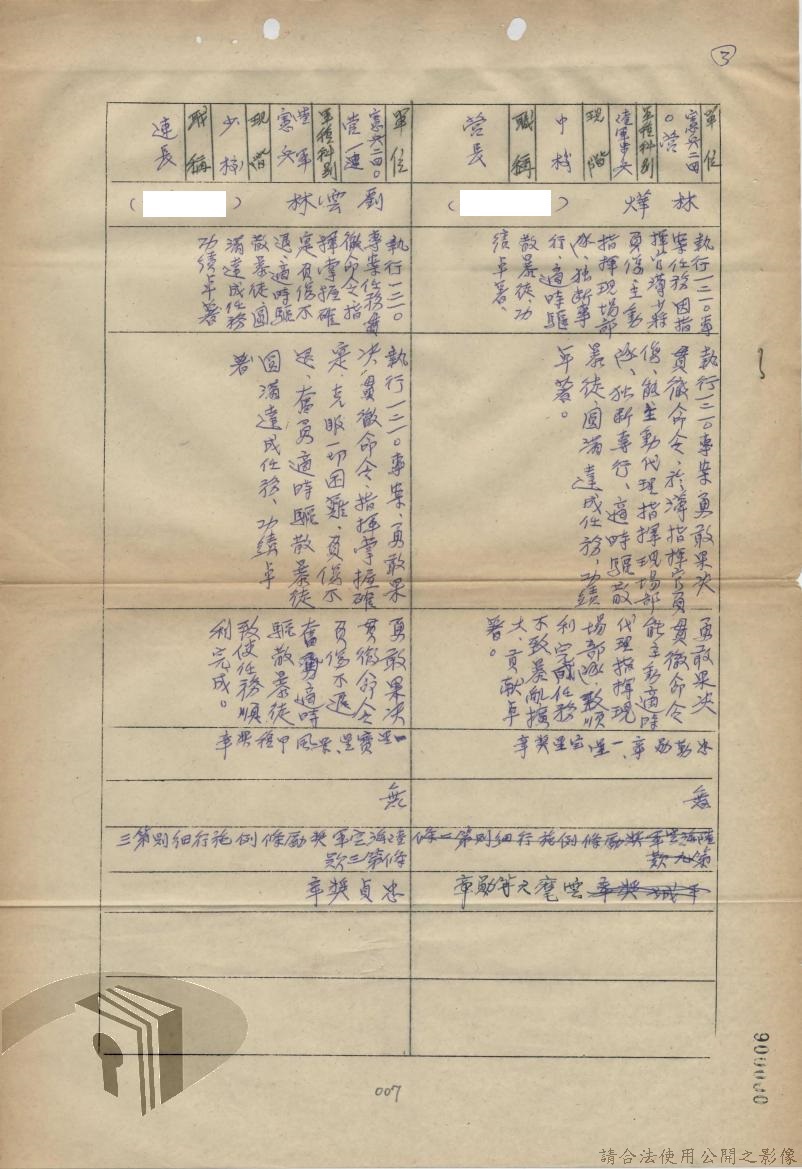 3
單位
憲兵二四
〇營
軍種科別
陸軍憲兵
現階
中校
職稱
營長
林煒
(
)
執行一二一〇專
案任務因指
揮官溥少將
負傷主動
指揮現場部
隊、獨斷專
行、適時驅
散暴徒、功
績卓著、
執行一二一〇專案勇敢果決
貫徹命令、於溥指揮官負
傷、能主動代理指揮現場部
隊、獨斷專行、適時驅散
暴徒、圓滿達成任務、功績
卓著。
勇敢果決
貫徹命令
能主動適時
代理指揮現
場部隊、致順
利完成任務
不致暴亂擴
大、貢獻卓
著。
忠勤勛章、一星寶星獎章
無
陸海空軍獎勵條例施行細則第二條
第九款
干城獎章雲麾六等勛章
單位
憲兵二四〇
營一連
軍種科別
陸軍
憲兵
現階
少校
職稱
連長
劉雲林
(
)
執行一二一〇
專案任務貫
徹命令指
揮掌握確
定負傷不
退、適時驅
散暴徒圓
滿達成任務
功績卓著
執行一二一〇專案、勇敢果
決、貫徹命令、指揮掌握確
定、克服一切困難、負傷不
退、奮勇適時驅散暴徒
圓滿達成任務、功績卓
著
勇敢果決
貫徹命令
負傷不退
奮勇適時
驅散暴徒
致使任務順
利完成。
一星寶星、景風甲種獎章
無
陸海空軍獎勵條例施行細則第三
條第三款
忠貞獎章
007
000006
請合法使用公開之影像